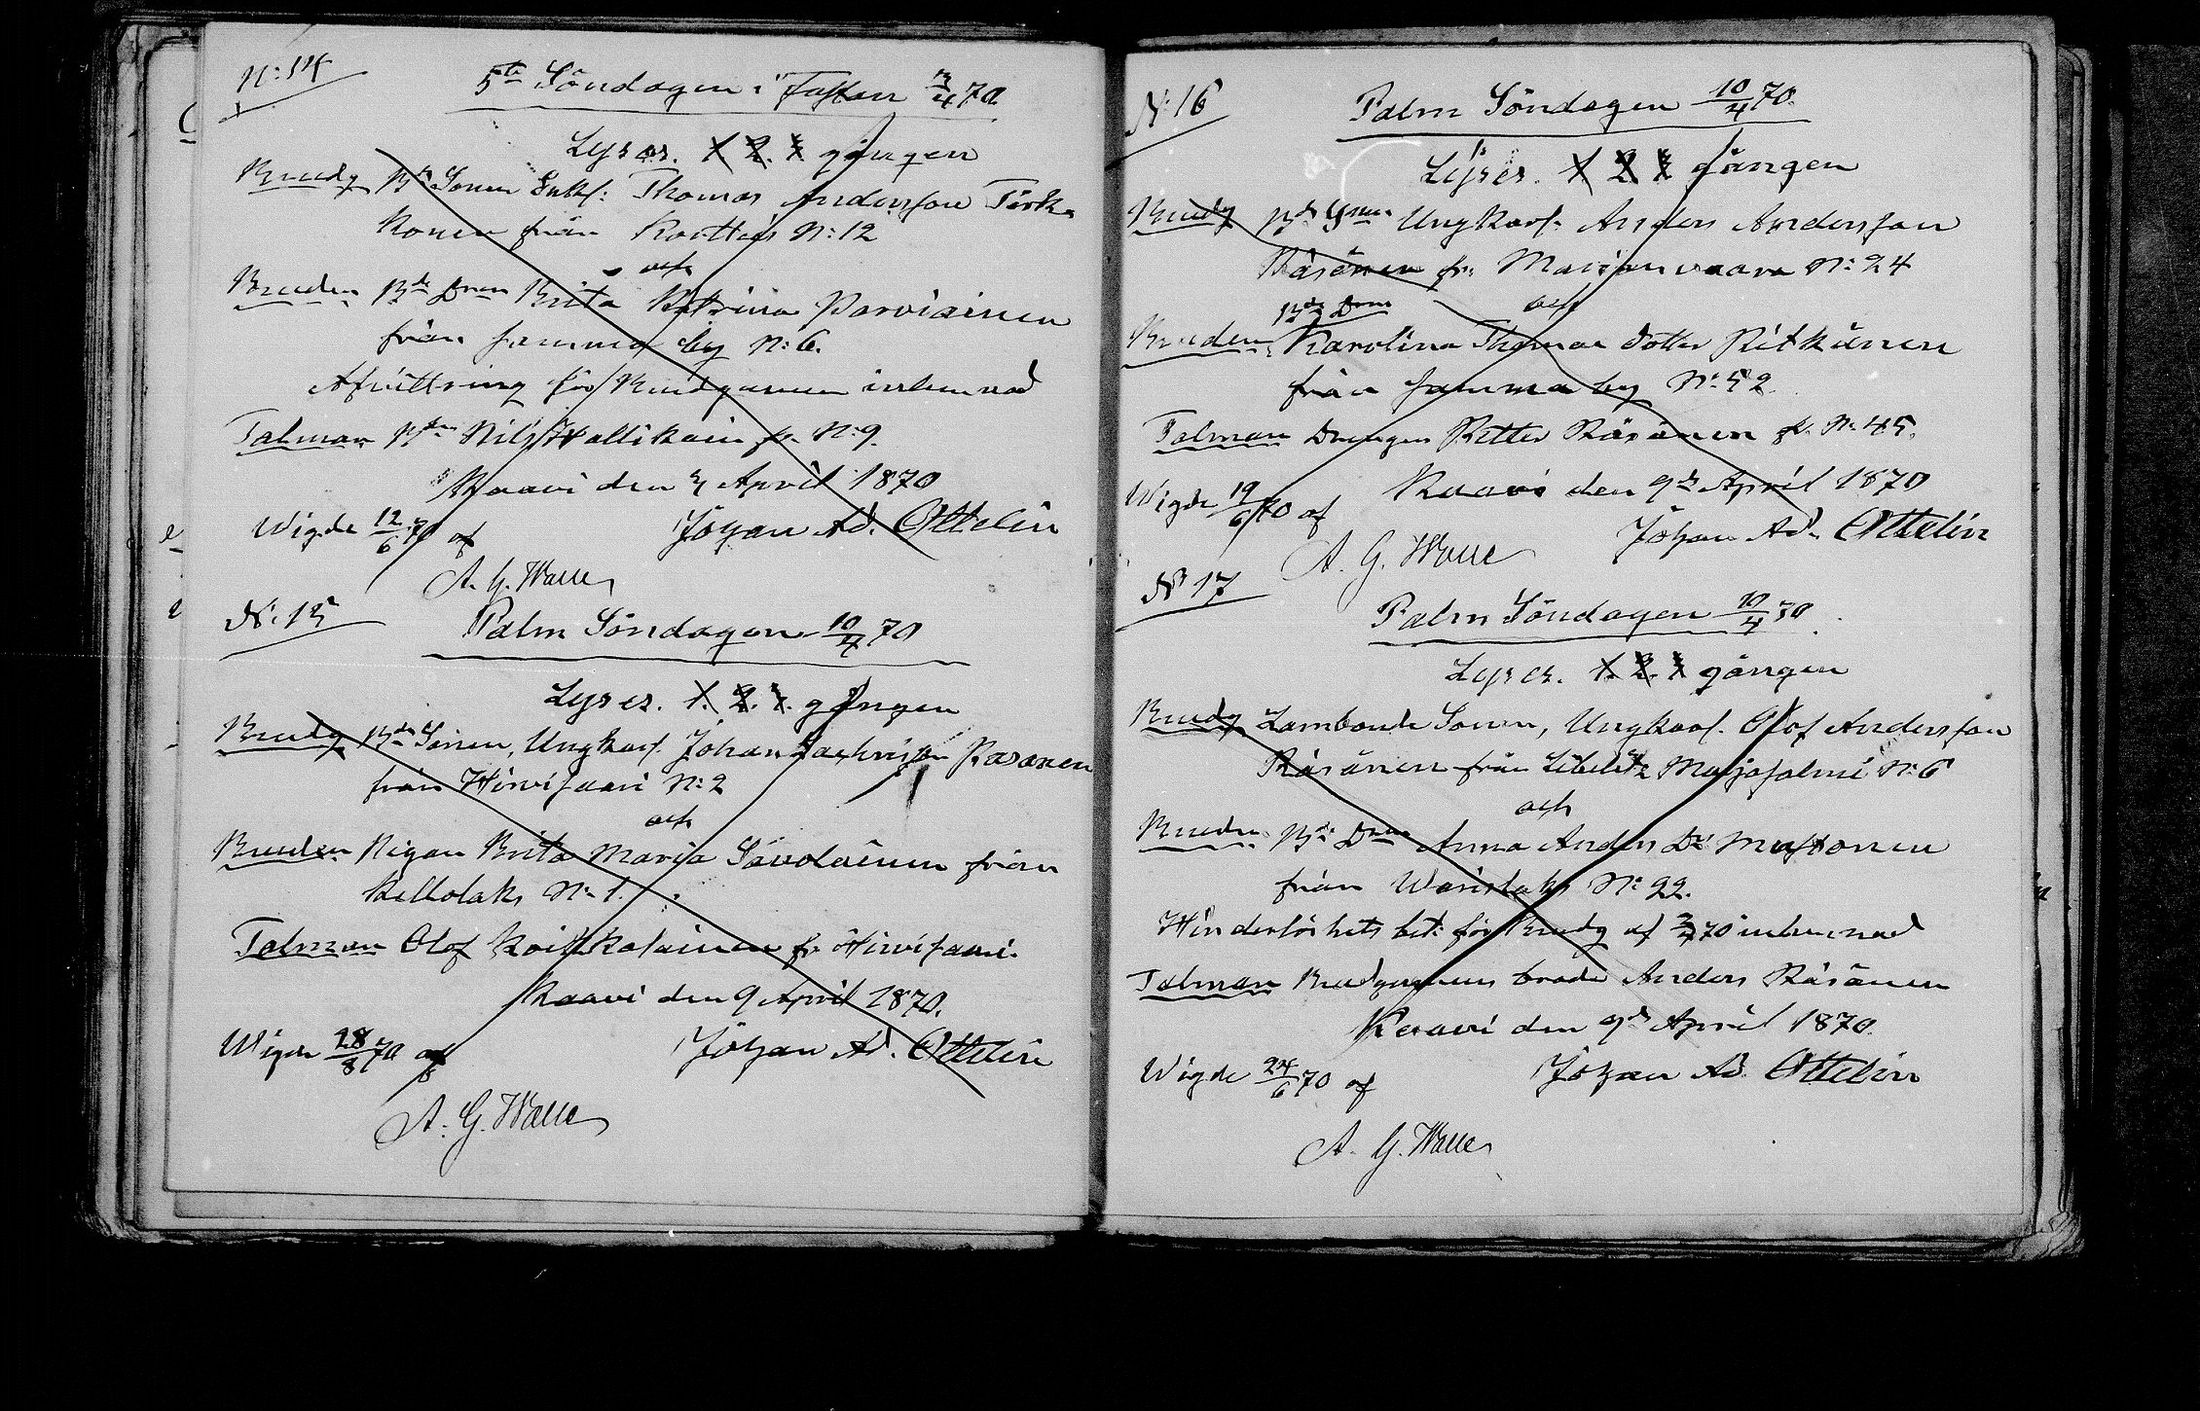 N: 14
5te Söndagen i Fastan 3/4 70.
Lyses. 1. 2. 3 gången
Brudg Bd Sonen Enkl: Thomas Andersson Tirk-
konen från Kortteis N: 12
och
Bruden Bde Dren Brita Katrina Parviainen
från samma by N: 6.
Afvittring för Brudgummen inlemnad
Talman Bden Nils Hallikain fr. N: 9.
Kaavi den 3 April 1870
Wigde 12/6 70 af Johan Ad. Ottelin
A. G. Walle
N: 15
Palm Söndagen 10/4 70
Lyses. 1. 2. 3. gången
Brudg Bde Sonen, Ungkarl. Johan Zachrisson Räsänen
från Hirvisaari N: 2
och
Bruden Pigan Brita Maria Savolainen från
Kellolaks N: 1.
Talman Olof Koikkalainen fr Hirvisaari.
Kaavi den 9 April 1870.
Wigde 28/8 70 af Johan Ad. Ottelin
A. G. Walle
N: 16
Palm Söndagen 10/4 70.
Lyses. 1. 2. 3 gången
Brudg Bde Sonen Ungkarl. Anders Andersson
Räsänen fr. Marjanvaara N: 24
och
Bde Dren
Bruden Karolina Thomas dotter Pitkänen
från samma by N: 52
Talman Drengen Petter Räsänen fr. N: 45.
Kaavi den 9de April 1870
Wigde 19/6 70 af Johan Ad. Ottelin
A. G. Walle
N: 17
Palm Söndagen 10/4 70
Lyses. 1. 2. 3 gången
Brudg Lamboude Sonen, Ungkarl. Olof Andersson
Räsänen från Libelitz Marjosalmi N: 6
och
Bruden Bde Dren Anna Anders Dr Mustonen
från Warislaks N: 22.
Hinderlöshets bet: för Brudg af 70 inlemnad
Talman Brudgummens broder Anders Räsänen
Kaavi den 9de April 1870.
Wigde 24/6 70 af Johan Ad. Ottelin
A. G. Walle